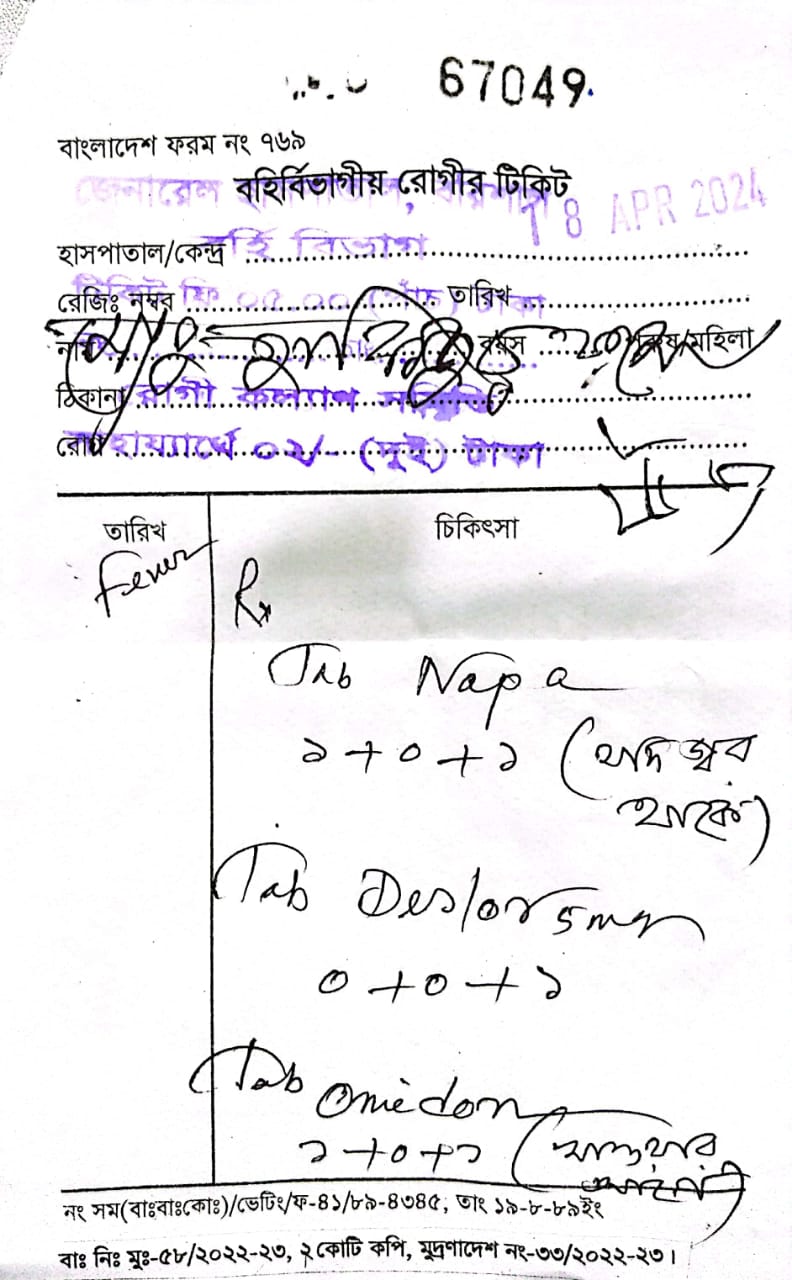 67049
বাংলাদেশ ফরম নং ৭৬৯
বহির্বিভাগীয় রোগীর টিকিট
জেনারেল
18 APR 2024
হাসপাতাল/কেন্দ্র বর্হি বিভাগ
রেজিঃ নম্বর তারিখ
টিকিট ফি ০৫.০০ (পাঁচ) টাকা
নাম বয়স পুরুষ/মহিলা
ঠিকানা রোগী কল্যাণ
রোগ সাহায্যার্থে ০২/- (দুই) টাকা
তারিখ চিকিৎসা
Fever
Rx
Tab Napa
১+০+১ (যদি জ্বর
থাকে)
Tab Deslor 5mg
০+০+১
Tab Omidon
১+০+১ (খাওয়ার
আগে)
নং সম(বাঃবাঃকোঃ)/ভেটিং/ফ-৪১/৮৯-৪৩৪৫, তাং ১৯-৮-৮৯ইং
বাঃ নিঃ মুঃ-৫৮/২০২২-২৩, ২ কোটি কপি, মুদ্রণাদেশ নং-৩৩/২০২২-২৩।